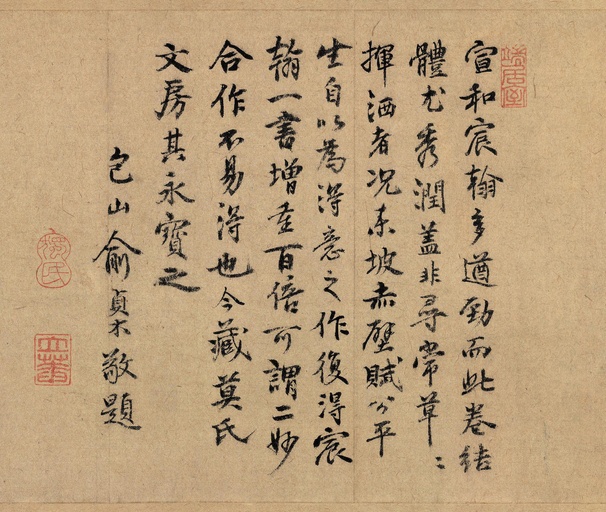 宣和宸翰多遒勁而此卷結
體尤秀潤蓋非尋常草〻
揮洒者况東坡赤壁賦公平
生自以為得意之作復得宸
翰一書增重百倍可謂二妙
合作不易得也今藏莫氏
文房其永寶之
包山俞貞木敬題